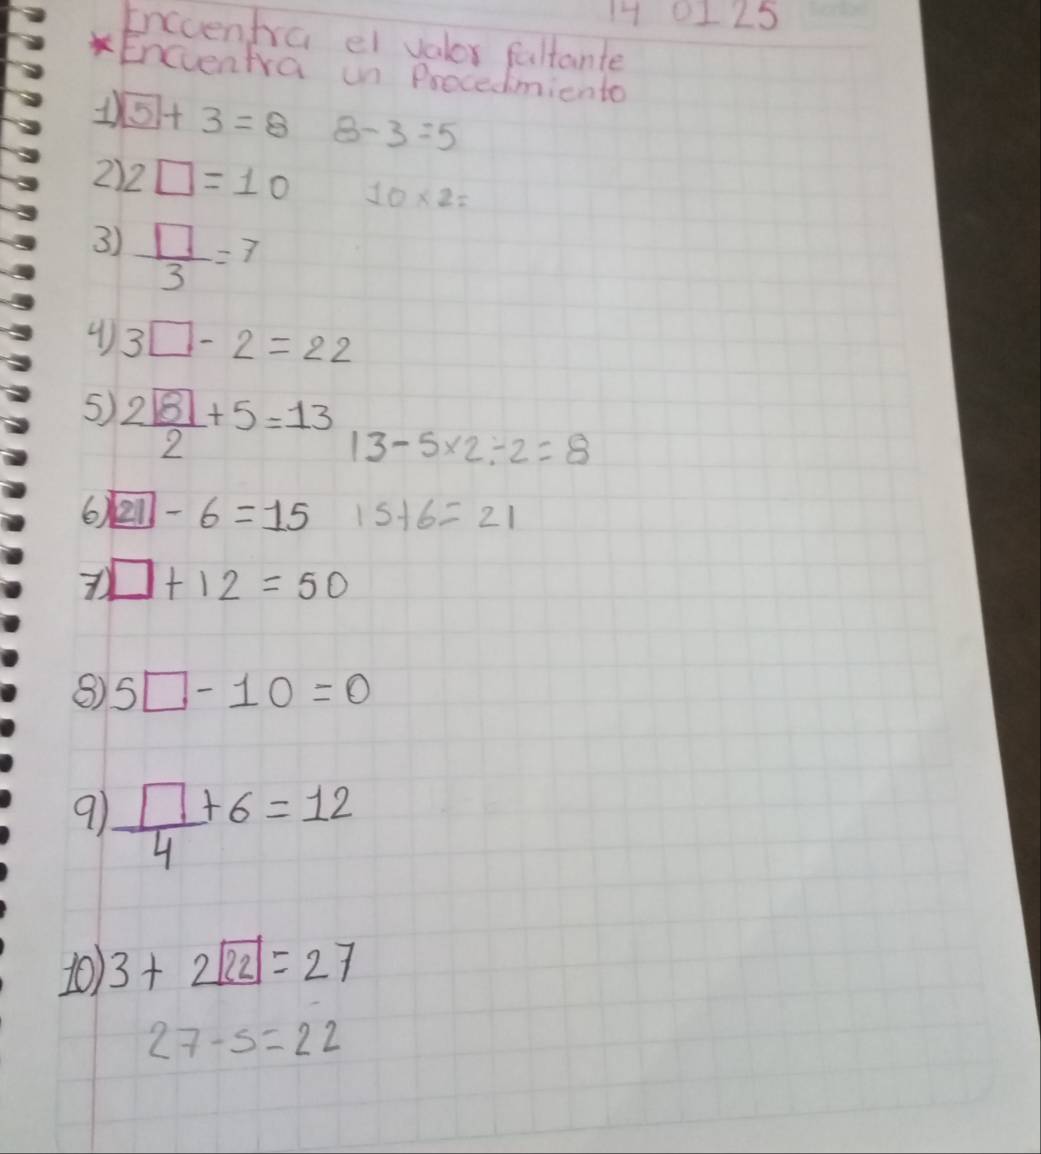 14 01 25
Encuentra el valor faltante
*Encuentra un Procedimiento
1) 5 + 3 = 8 8-3=5
2) 2 □ = 10 10×2=
3) □/3 = 7
4) 3 □ - 2 = 22
5) 2 8/2 + 5 = 13
13-5×2÷2=8
6) 21 - 6 = 15 15+6=21
7) □ + 12 = 50
8) 5 □ - 10 = 0
9) □/4 + 6 = 12
10) 3 + 2 22 = 27
27-5=22